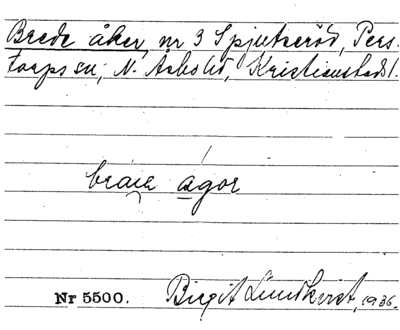 Brede åker, nr 3 Spjutseröd, Pers-
torps sn, N. Åsbo hd, Kristianstads l.
braiɛ ågor
Nr 5500. Birgit Lundkvist, 1936.